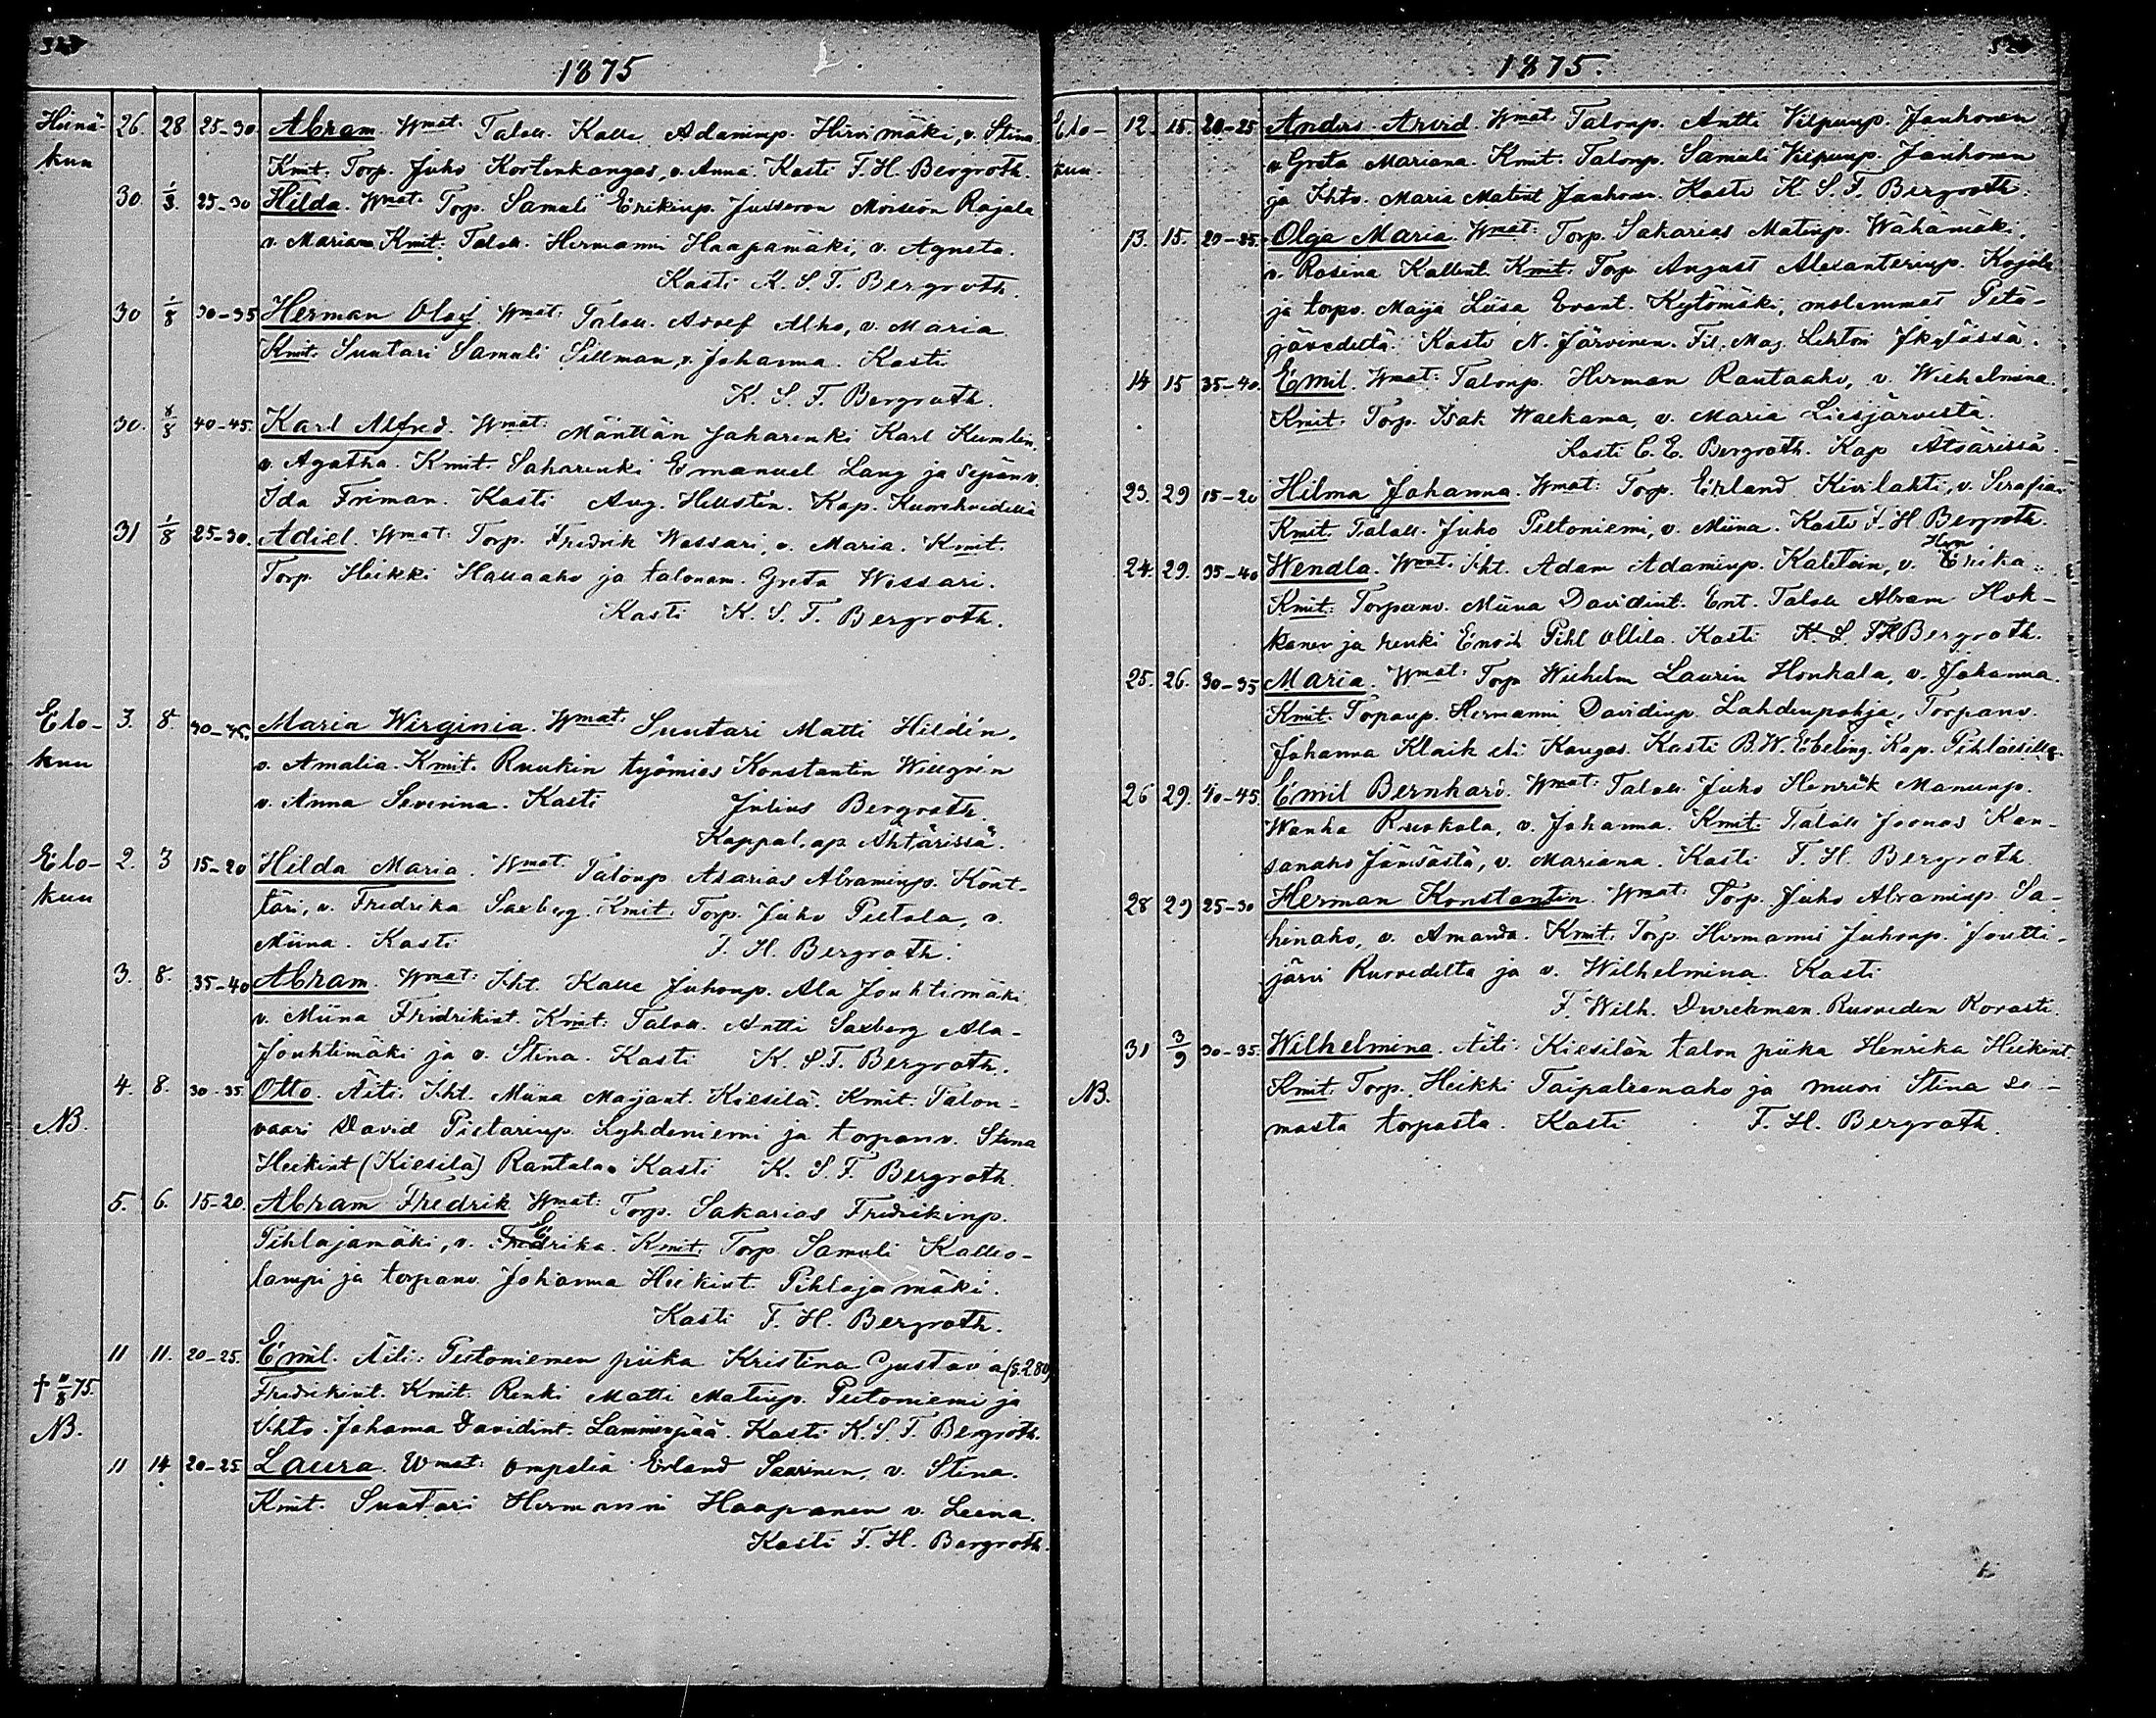 1875
Heinä- 26. 28 25-30 Abram. Wmat. Talou. Kalle Adaminp. Hirvimäki, v. Stina
kuu Kmit. Torp. Juho Kortenkangas, v. Anna. Kasti F. H. Bergroth.
30. 1/8. 25-30 Hilda. Wmat. Torp. Samuli Erikinp. Moision Rajala
v. Mariana Kmit. Talou. Hermanni Haapamäki, v. Agneta.
Kasti K. S. F. Bergroth.
30 1/8 30-35 Herman Olof. Wmat. Talou. Adolf Alho, v. Maria
Kmit. Suutari Samuli Sillman, v. Johanna. Kasti
K. S. F. Bergroth.
30. 8/8 40-45. Karl Alfred. Wmat. Mänttän Saharenki Karl Kumlin,
v. Agatha. Kmit. Saharenki Emanuel Lang ja sepänv.
Ida Friman. Kasti Aug. Hellstén. Kap. Kuorehvedellä
31 1/8 25-30. Adiel. Wmat. Torp. Fredrik Wessari, v. Maria. Kmit.
Torp. Heikki Hallaaho ja talonem. Greta Wessari.
Kasti K. S. F. Bergroth.
Elo- 3. 8. 40-45. Maria Wirginia. Wmat. Suutari Matti Hildén,
kuu v. Amalia. Kmit. Ruukin työmies Konstantin Willgrén
v. Anna Severina. Kasti Julius Bergroth.
Kappal. ap. Ähtärissä.
Elo- 2. 3 15-20 Hilda Maria. Wmat. Talonp. Asarias Abraminp. Könt-
kuu täri, v. Fredrika Saxberg. Kmit. Torp. Juho Peltola, v.
Miina. Kasti F. H. Bergroth.
3. 8. 35-40 Abram. Wmat. Iht. Kalle Juhonp. Ala Jouhtimäki
v. Miina Fredrikint. Kmit. Talou. Antti Saxberg Ala-
Jouhtimäki ja v. Stina. Kasti K. S. F. Bergroth.
4. 8. 30-35. Otto. Äiti. Iht. Miina Maijant. Kiesilä. Kmit. Talon-
NB. vaari David Pietarinp. Lyhdeniemi ja torpanv. Stina
Heikint (Kiesilä) Rantala. Kasti K. S. F. Bergroth.
5. 6. 15-20. Abram Fredrik Wmat. Torp. Sakarias Fredrikinp.
Pihlajamäki, v. Erika. Kmit. Torp Samuli Kallio-
lampi ja torpanv. Johanna Heikint. Pihlajamäki.
Kasti F. H. Bergroth.
11 11. 20-25. Emil. Äiti: Peltoniemen piika Kristina Gustava (s. 280)
† 11/8 75. Fredrikint. Kmit. Renki Matti Matinp. Peltoniemi ja
NB. Ihto. Johanna Davidint. Lamminpää. Kasti K. S. F. Bergroth.
11 14 20-25 Laura. Wmat. ompelia Erland Saarinen, v. Stina.
Kmit. Suutari Hermanni Haapanen v. Leena.
Kasti F. H. Bergroth.
1875.
Elo- 12. 15 20-25 Anders Arvid. Wmat. Talonp. Antti Vilpunp. Janhonen
kuu. v. Greta Mariana. Kmit. Talonp. Samuli Vilpunp. Janhonen
ja Ihto. Maria Matint Janhonen. Kasti K. S. F. Bergroth.
13. 15. 20-25. Olga Maria. Wmat. Torp. Sakarias Matinp. Wähämäki,
v. Rosina Kallent. Kmit. Torp. August Alexanterinp. Kojola
ja torpv. Maija Liisa Evant. Kytömäki, molemmat Petä-
jävedeltä. Kasti N. Järvinen. Fil. Mag. Lehtori Jkylässä.
14 15 35-40. Emil. Wmat. Talonp. Herman Rautaaho, v. Wilhelmina.
Kmit. Torp. Isak Waekama, v. Maria Liesjärvestä.
Kasti C. E. Bergroth. Kap Ätsärissä.
23. 29 15-20 Hilma Johanna. Wmat. Torp. Erland Kivilahti, v. Serafia.
Kmit. Talou. Juho Peltoniemi, v. Miina. Kasti F. H. Bergroth.
24. 29. 35-40 Wendla. Wmat. Iht. Adam Adaminp. Kaletoin, v. Erika.
Kmit. Torpanv. Miina Davidint. Ent. Talou Abram Hok-
kanen ja renki Enok Pihl Ollila. Kasti F H Bergroth.
25. 26. 30-35 Maria. Wmat. Torp Wilhelm Laurin Honkala, v. Johanna.
Kmit. Torpanp. Hermanni Davidinp. Lahdenpohja, Torpanv.
Johanna Klaik eli Kangas. Kasti B. W. Ebeling. Kap. Pihlavesillä.
26 29. 40-45. Emil Bernhard. Wmat. Talou. Juho Henrik Manunp.
Wanha Ruokola, v. Johanna. Kmit. Talou Joonas Kan-
sanaho Jämsästä, v. Mariana. Kasti F. H. Bergroth.
28 29 25-30 Herman Konstantin. Wmat. Torp. Juho Abraminp. Sa-
hinaho, v. Amanda. Kmit. Torp. Hermanni Juhonp. Joutti-
järvi Ruovedelta ja v. Wilhelmina. Kasti
F. Wilh. Durchman. Ruoveden Rovasti.
31 3/9 30-35. Wilhelmina. Äiti: Kiesilän talon piika Henrika Heikint.
NB. Kmit. Torp. Heikki Taipaleenaho ja muori Stina sa-
masta torpasta. Kasti F. H. Bergroth.